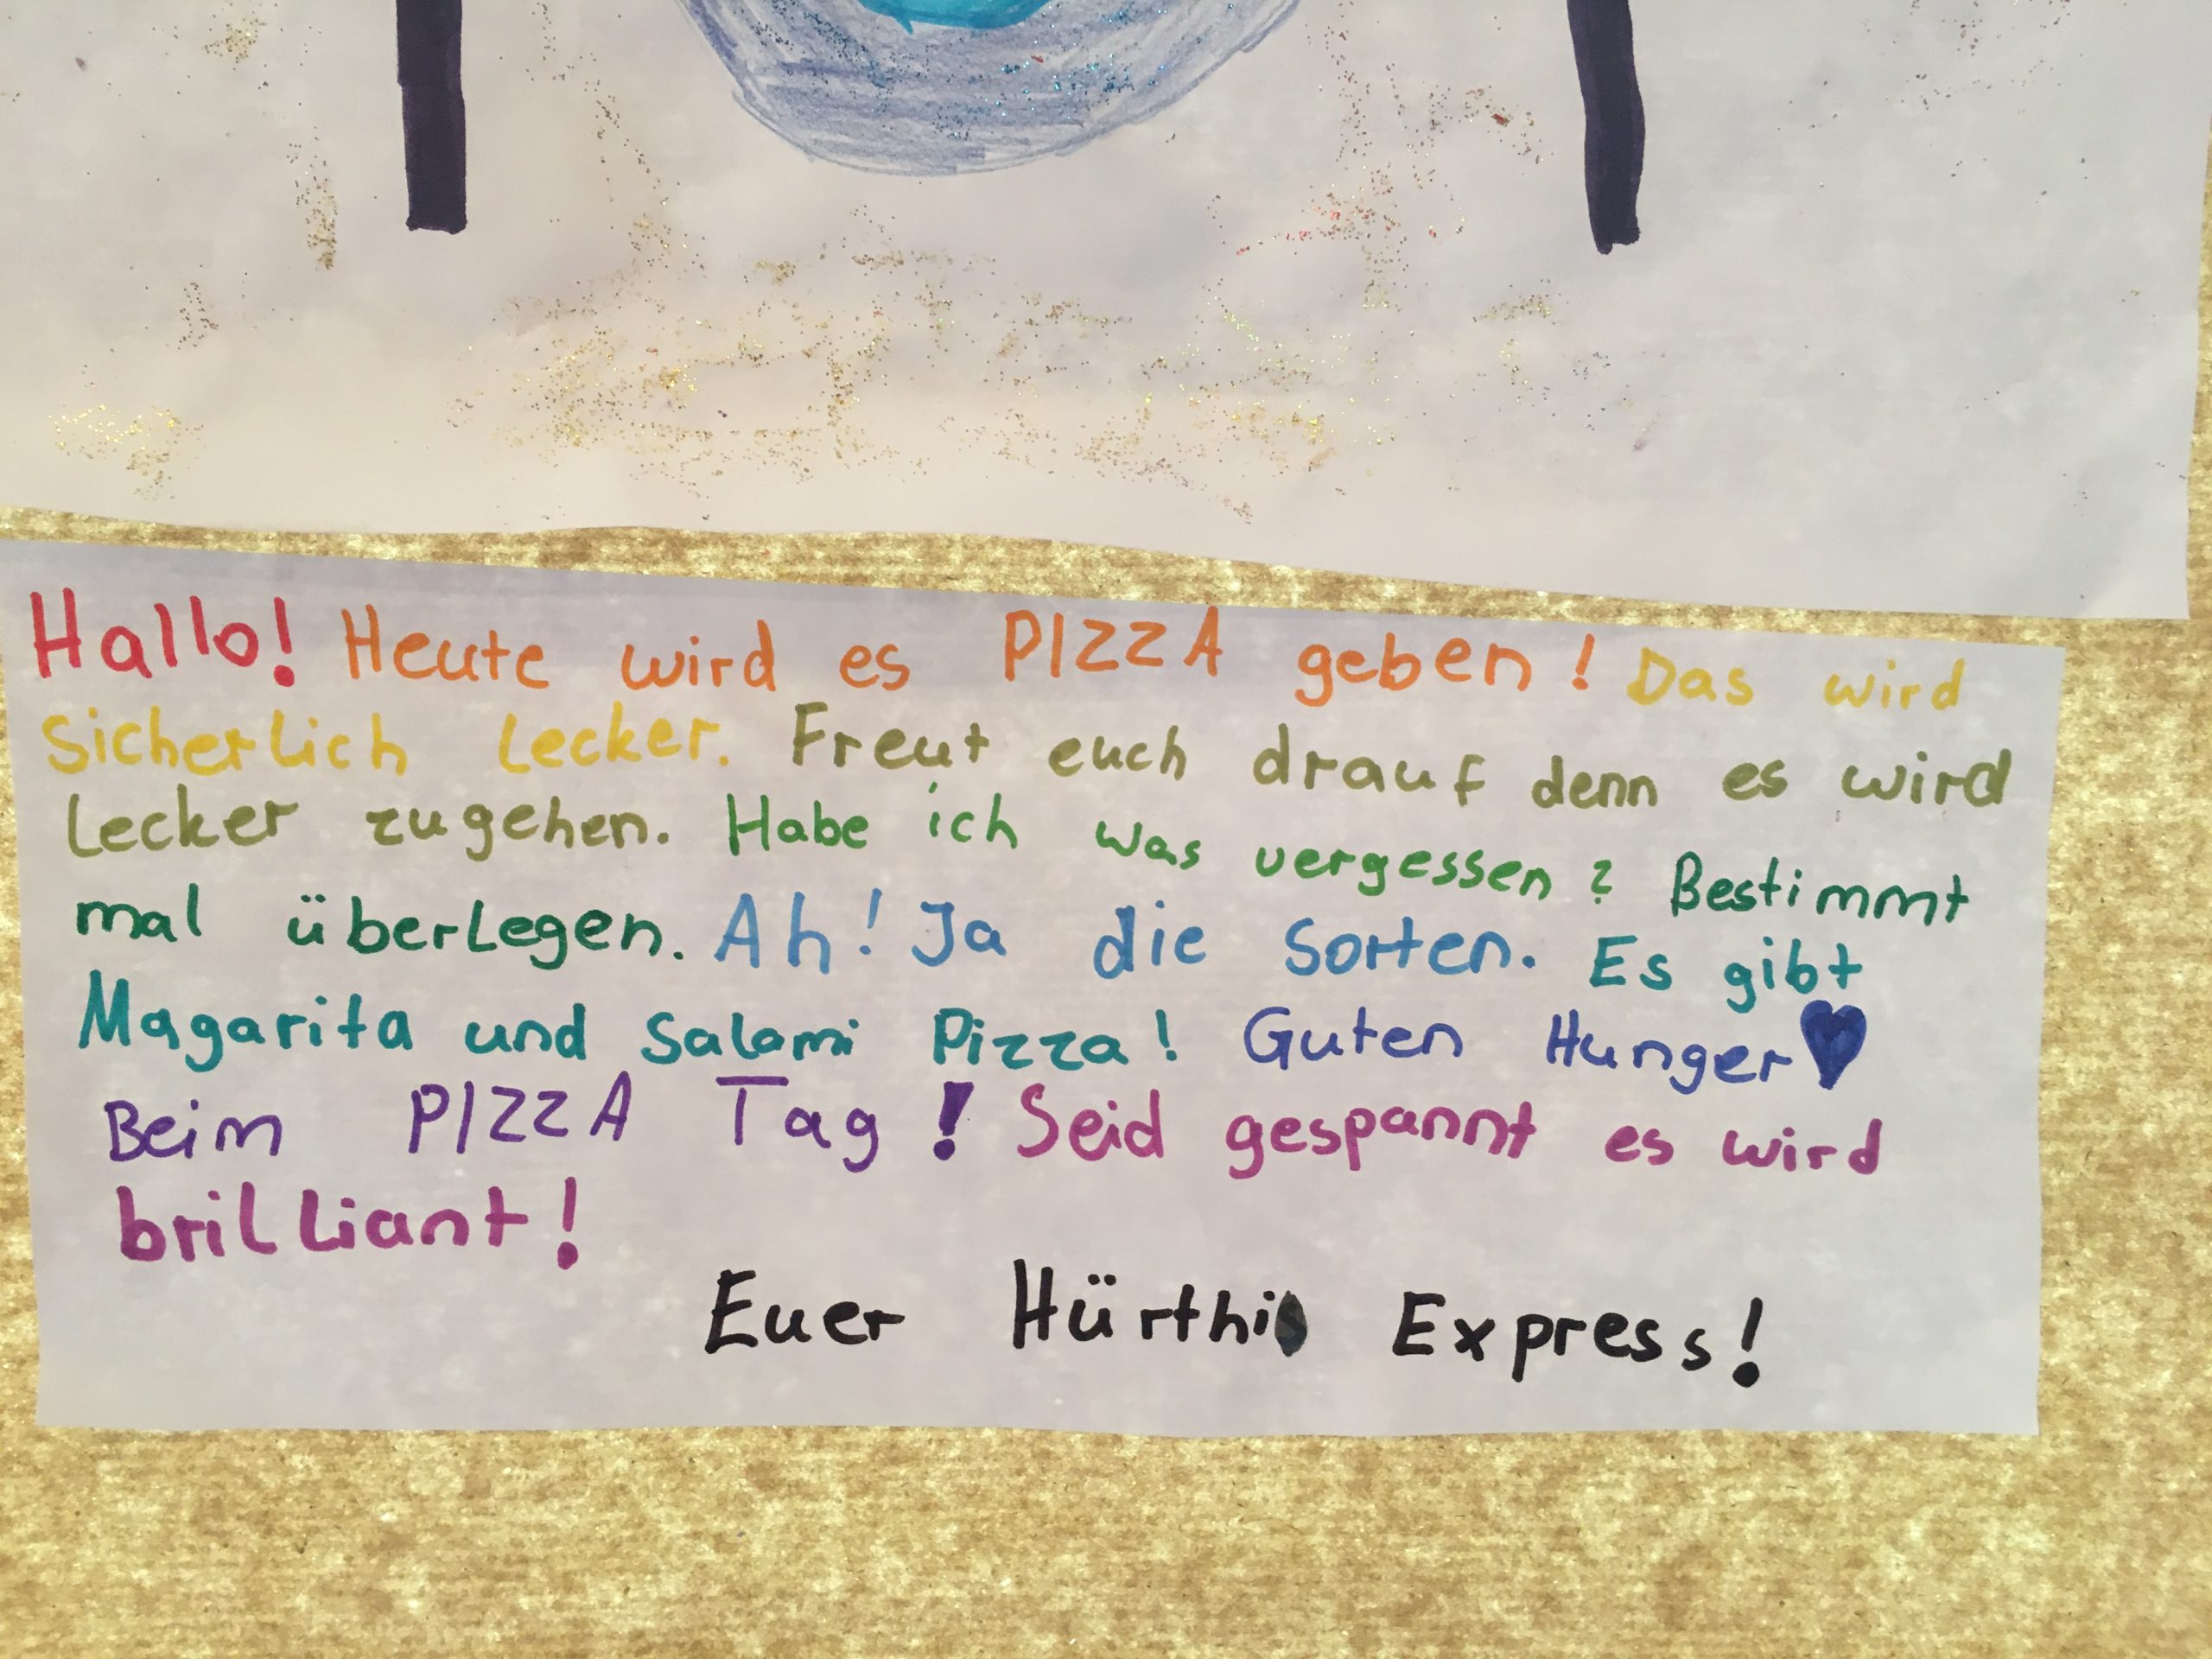 Hallo! Heute wird es PIZZA geben! Das wird
Sicherlich lecker. Freut euch drauf denn es wird
Lecker zugehen. Habe ich was vergessen? Bestimmt
mal überlegen. Ah! Ja die Sorten. Es gibt
Magarita und Salami Pizza! Guten Hunger
Beim PIZZA Tag! Seid gespannt es wird
brilliant!
Euer Hürthi Express!